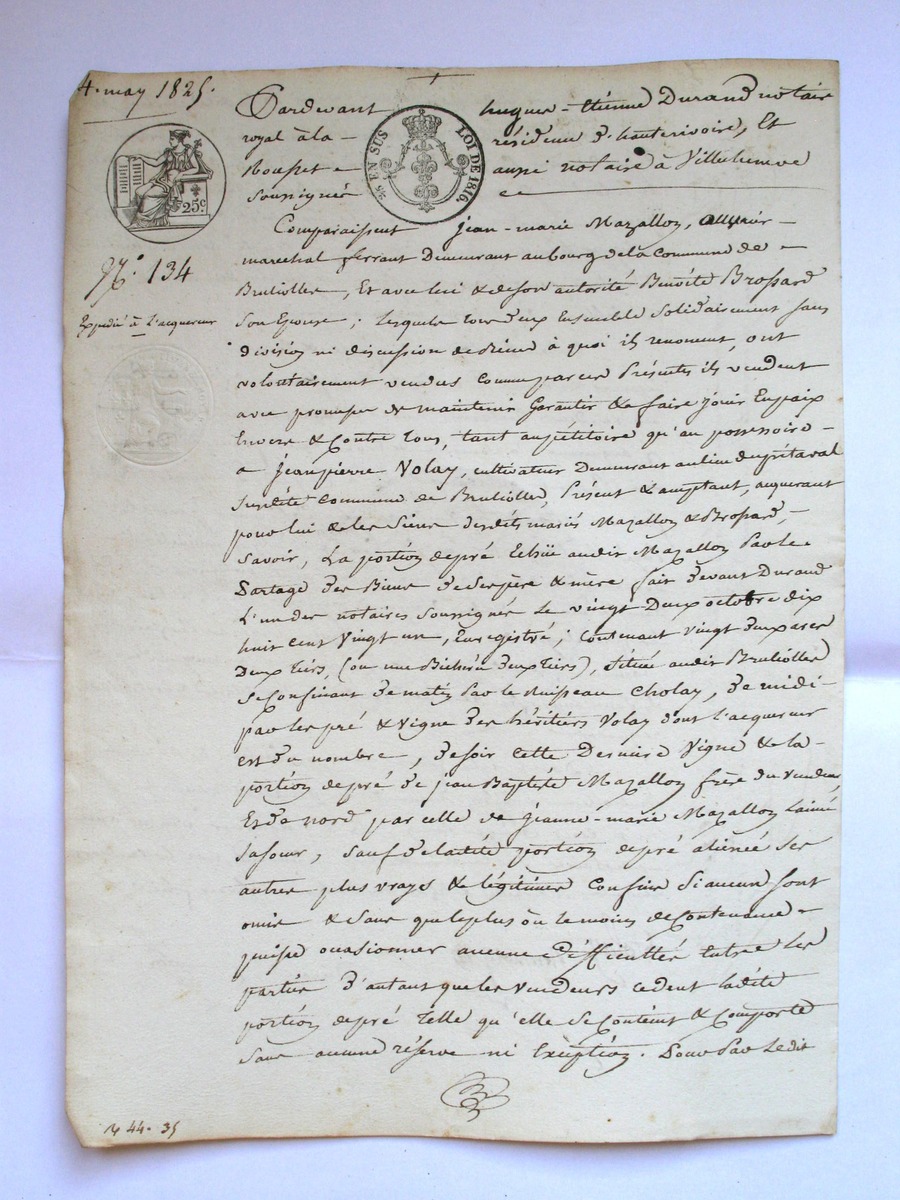 4. may 1825.
Pardevant hugues-Etienne Durand notaire
royal à la résidence d'hauterivoire, Et
Rousset aussi notaire à Villecheneve
soussignés
EN SUS LOI DE 1816.
25c.
N.° 134
Expédié à L'acquereur
Comparaissent jean-marie Mazallon, ouvrier
marechal ferrant Demeurant au bourg de la Commune de
Bruliolles, Et avec lui & de son autorité Benoite Brossard
son Epouse; lesquels tous deux Ensemble Solidairement sans
division ni discussion de biens à quoi ils renoncent, ont
volontairement vendus comme par ces Présentes ils vendent
avec promesse de maintenir Garantir & faire jouir En paix
Envers & Contre tous, tant au pétitoire qu'au possessoire
a jean pierre Volay, cultivateur Demeurant au lieu du prétaval
susdite Commune de Bruliolles, Présent & acceptant, acquerant
pour lui & les siens desdits mariés Mazallon & Brossard,
Savoir, La portion de pré Echüe audit Mazallon Par le
Partage des Biens de ses père & mère fait devant Durand
L'un des notaires soussignés Le vingt Deux octobre dix
huit cent vingt un, Enregistré; Contenant vingt deux ares
Deux tiers, (ou une Bicherée deux tiers), située audit Brulioles
se Confinant de matin Par le Ruisseau Cholay, de midi
par les pré & vigne des héritiers Volay dont l'acquereur
est du nombre, de soir cette Derniere vigne & la
portion de pré de jean Baptiste Mazallon frère du vendeur,
Et de nord par celle de jeanne-marie Mazallon Lainé
sa soeur, sauf de ladite portion de pré aliénée ses
autres plus vrayes & légitimes Confins si aucun sont
omis & sans que le plus ou le moins de Contenance
puisse ocasionner aucune difficultés Entre les
parties d'autant que les vendeurs cedent ladite
portion de pré Telle qu'elle se Contient & Comporte
sans aucune réserve ni Exception. Pour Par Ledit
44. 35